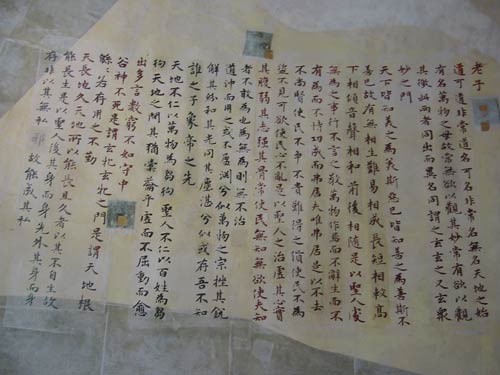 老子
道可道非常道名可名非常名無名天地之始
有名萬物之母故常無欲以觀其妙常有欲以觀
其徼此兩者同出而異名同謂之玄玄之又玄衆
妙之門
天下皆知美之為美斯惡已皆知善之為善斯不
善已故有無相生難易相成長短相較高
下相傾音聲相和前後相隨是以聖人處
無為之事行不言之教萬物作焉而不辭生而不
有為而不恃功成而弗居夫唯弗居是以不去
不尚賢使民不爭不貴難得之貨使民不為
盜不見可欲使民心不亂是以聖人之治虛其心實
其腹弱其志强其骨常使民無知無欲使夫知
者不敢為也為無為則無不治
道沖而用之或不盈淵兮似萬物之宗挫其銳
解其紛和其光同其塵湛兮似或存吾不知
誰之子象帝之先
天地不仁以萬物為芻狗聖人不仁以百姓為芻
狗天地之間其猶橐籥乎虛而不屈動而愈
出多言數窮不如守中
谷神不死是謂玄牝玄牝之門是謂天地根
緜〻若存用之不勤
天長地久天地所以能長且久者以其不自生故
能長生是以聖人後其身而身先外其身而身
存非以其無私邪故能成其私